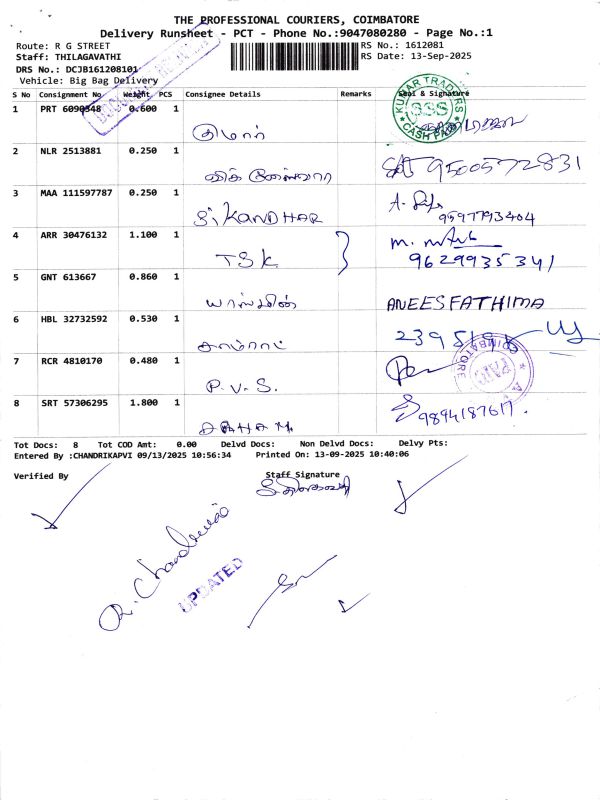 THE PROFESSIONAL COURIERS, COIMBATORE
Delivery Runsheet - PCT - Phone No.:9047080280 - Page No.:1
Route: R G STREET
RS No.: 1612081
Staff: THILAGAVATHI
RS Date: 13-Sep-2025
DRS No.: DCJB161208101
Vehicle: Big Bag Delivery
S No Consignment No Weight PCS Consignee Details Remarks Seal & Signature
KUMAR TRADERS
SSS
CASH PAID
1 PRT 6090348 0.600 1
குமார்
2 NLR 2513881 0.250 1
9500572831
3 MAA 111597787 0.250 1
SiKANDHAR
9597793404
4 ARR 30476132 1.100 1
TSK
9629935341
5 GNT 613667 0.860 1
யாஸ்மின் ANEES FATHIMA
6 HBL 32732592 0.530 1
சாம்ராட்
COIMBATORE
7 RCR 4810170 0.480 1
P.V.S.
8 SRT 57306295 1.800 1
9894187617.
Tot Docs: 8 Tot COD Amt: 0.00 Delvd Docs: Non Delvd Docs: Delvy Pts:
Entered By :CHANDRIKAPVI 09/13/2025 10:56:34 Printed On: 13-09-2025 10:40:06
Verified By
Staff Signature
UPDATED